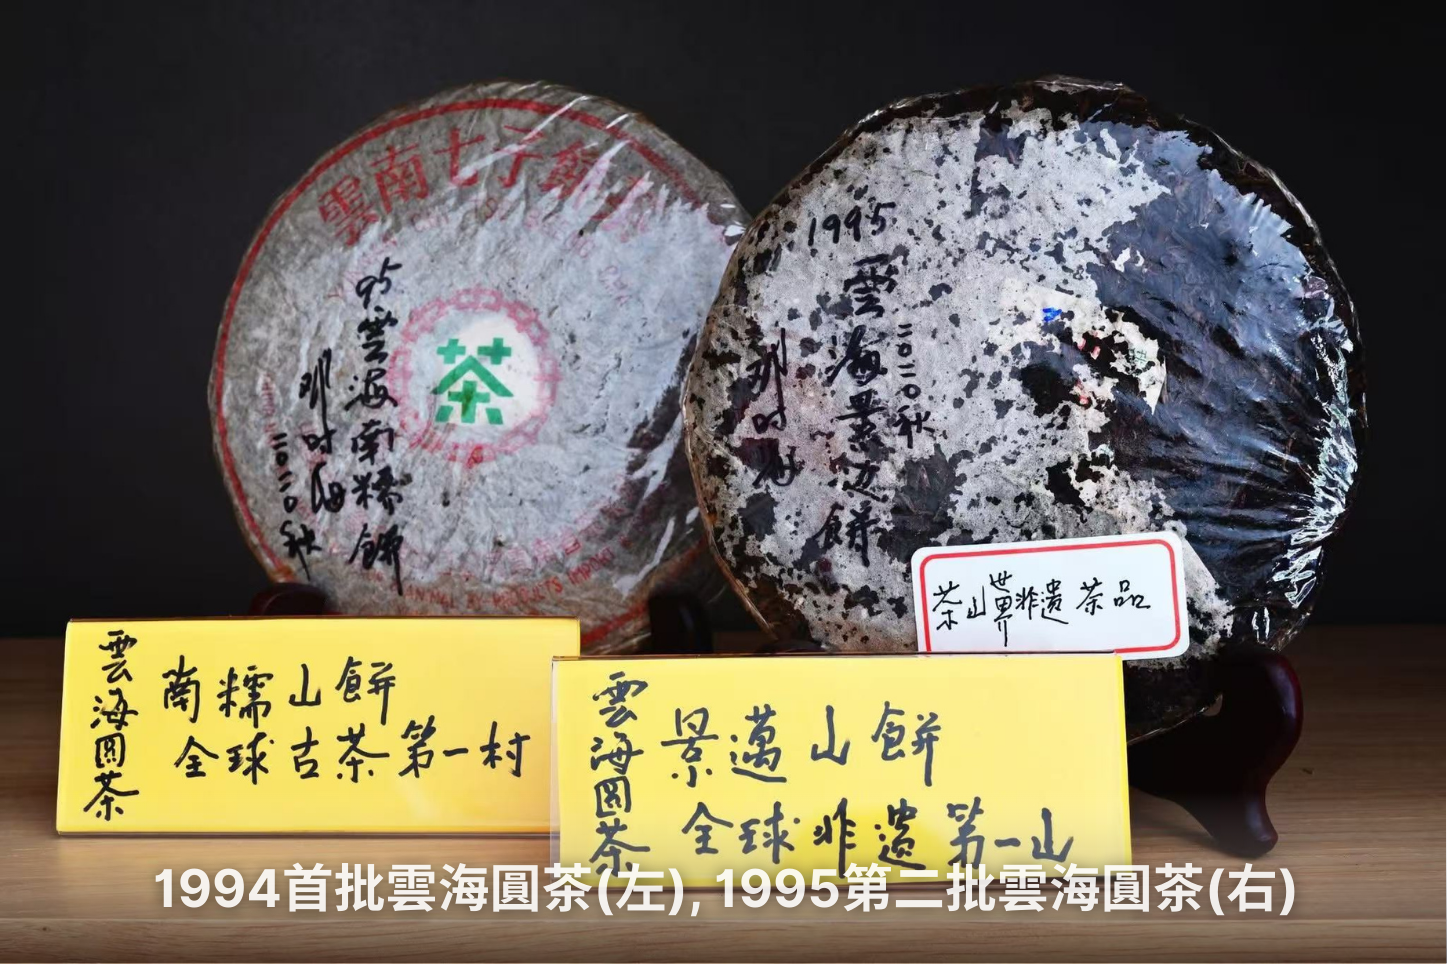 雲南七子餅
茶
95雲海南糯餅
那时海
二〇二〇秋
1995
雲海景迈餅
二〇二〇秋
那时海
茶山世界非遗茶品
雲海圓茶
南糯山餅
全球古茶第一村
雲海圓茶
景邁山餅
全球非遗第一山
1994首批雲海圓茶(左), 1995第二批雲海圓茶(右)